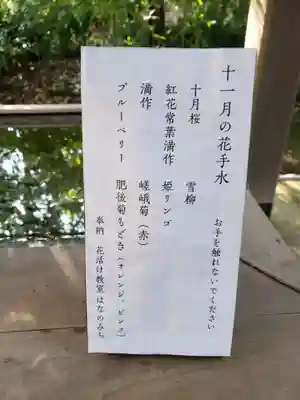 十一月の花手水
お手を触れないでください
十月桜 雪柳
紅花常葉満作 姫リンゴ
満作 嵯峨菊(赤)
ブルーベリー 肥後菊もどき(オレンジ、ピンク)
奉納 花活け教室はなのみち